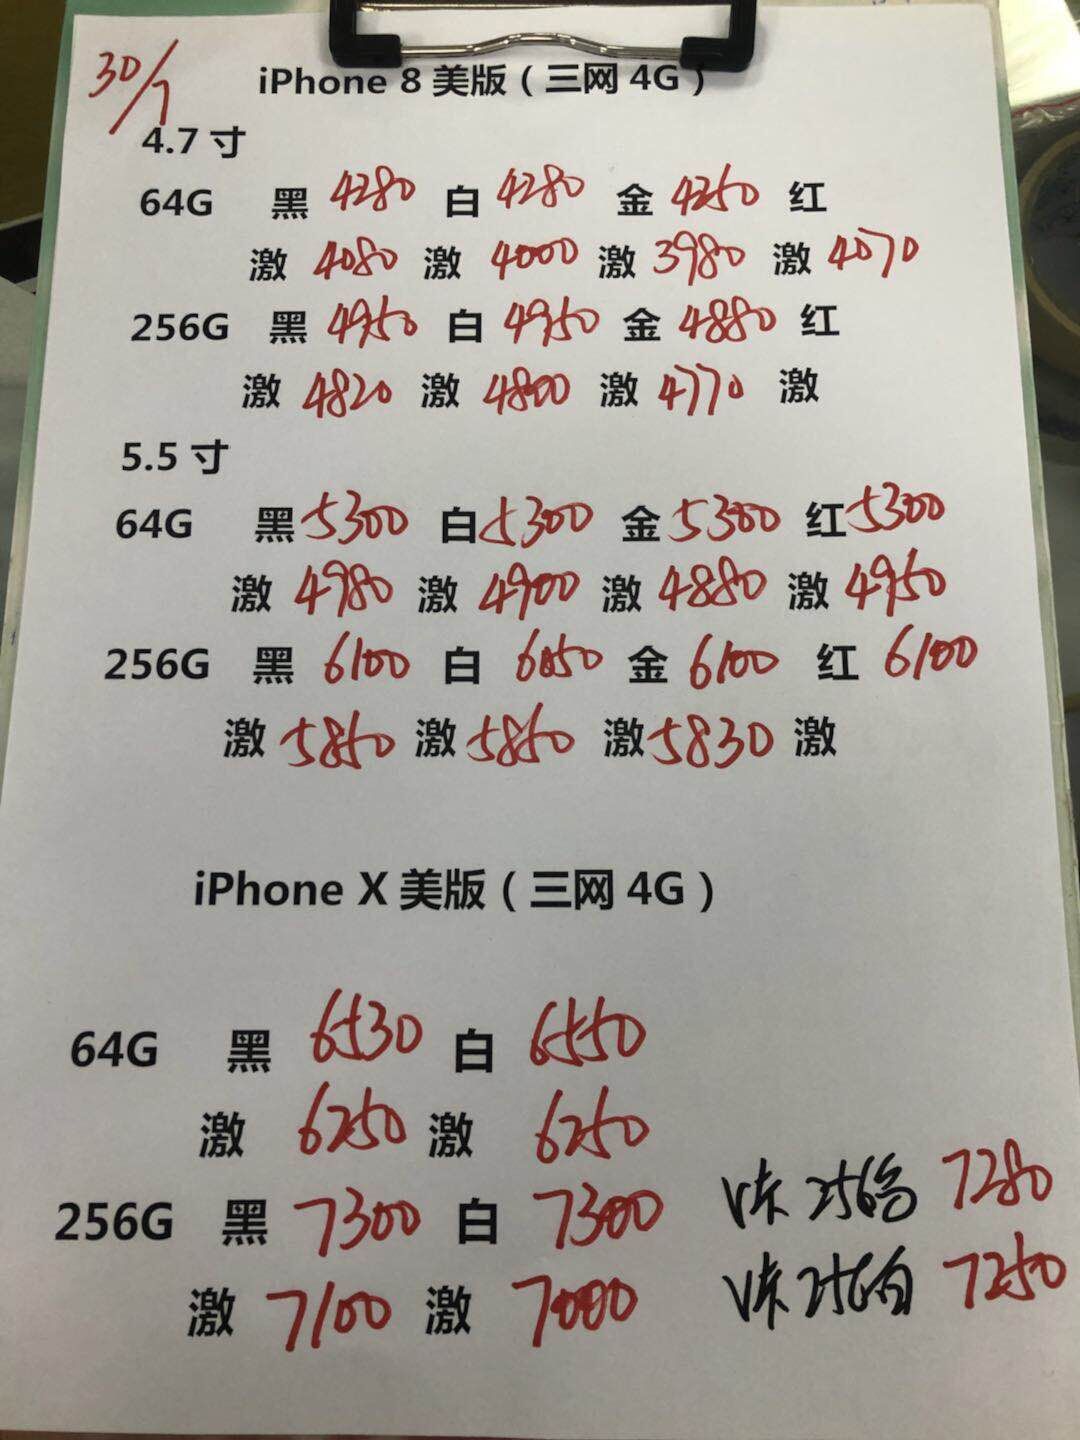 30/7
iPhone 8 美版（三网 4G）
4.7 寸
64G 黑 4280 白 4280 金 4250 红
激 4080 激 4000 激 3980 激 4070
256G 黑 4950 白 4950 金 4880 红
激 4820 激 4800 激 4770 激
5.5 寸
64G 黑 5300 白 5300 金 5300 红 5300
激 4980 激 4900 激 4880 激 4950
256G 黑 6100 白 6050 金 6100 红 6100
激 5850 激 5850 激 5830 激
iPhone X 美版（三网 4G）
64G 黑 6530 白 6550
激 6250 激 6250
256G 黑 7300 白 7300
256 7280
激 7100 激 7000
256白 7250